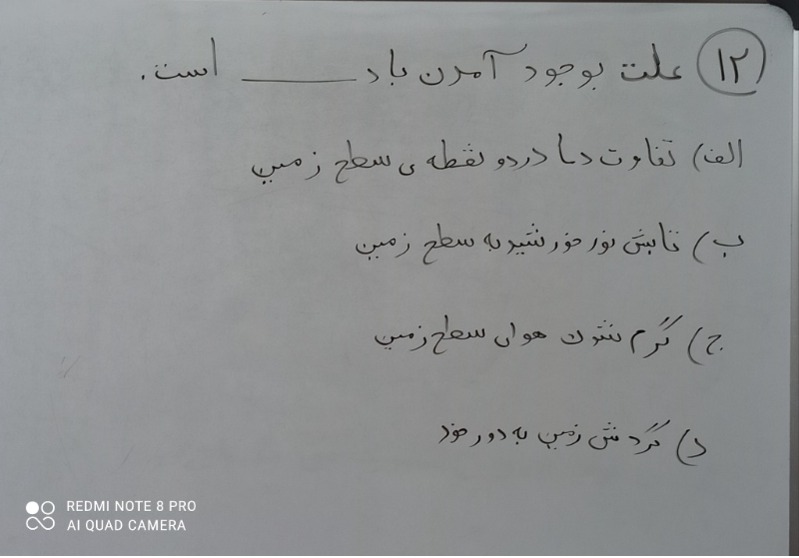 ۱۲ علت بوجود آمدن باد ______ است.
الف) تفاوت دما در دو نقطه ی سطح زمین
ب) تابش نور خورشید به سطح زمین
ج) گرم شدن هوای سطح زمین
د) گردش زمین به دور خود
REDMI NOTE 8 PRO
AI QUAD CAMERA